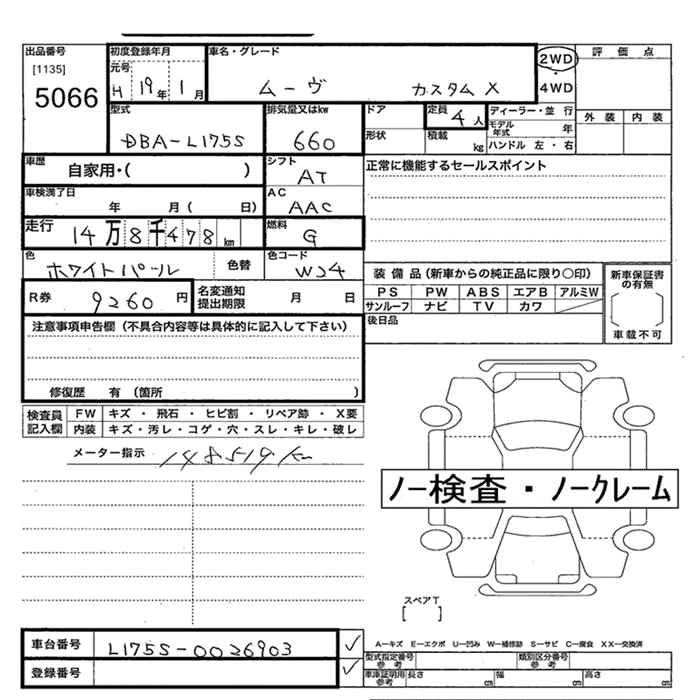 出品番号 初度登録年月 車名・グレード 2WD 評価点
[1135] 元号
5066 H 19年 1月 ムーヴ カスタム X 4WD
型式 排気量又はkw ドア 定員 4人 ディーラー・並行 外装 内装
DBA-L175S 660 形状 積載 kg モデル年式 年
ハンドル 左・右
車歴 自家用・( ) シフト AT 正常に機能するセールスポイント
車検満了日 年 月( 日) AC AAC
走行 14万8千478km 燃料 G
色 ホワイトパール 色替 色コード W24
装備品(新車からの純正品に限り○印) 新車保証書の有無
R券 9260円 名変通知提出期限 月 日 PS PW ABS エアB アルミW
サンルーフ ナビ TV カワ
注意事項申告欄(不具合内容等は具体的に記入して下さい) 後日品 車載不可
修復歴 有(箇所 )
検査員記入欄 FW キズ・飛石・ヒビ割・リペア跡・X要
内装 キズ・汚レ・コゲ・穴・スレ・キレ・破レ
メーター指示 148519km
ノー検査・ノークレーム
スペアT
[ ]
車台番号 L175S-0026903 ✓
A-キズ E-エクボ U-凹み W-補修跡 S-サビ C-腐食 XX-交換済
登録番号 ✓
型式指定番号 参考 類別区分番号 参考
車庫証明用 参考 長さ cm 幅 cm 高さ cm